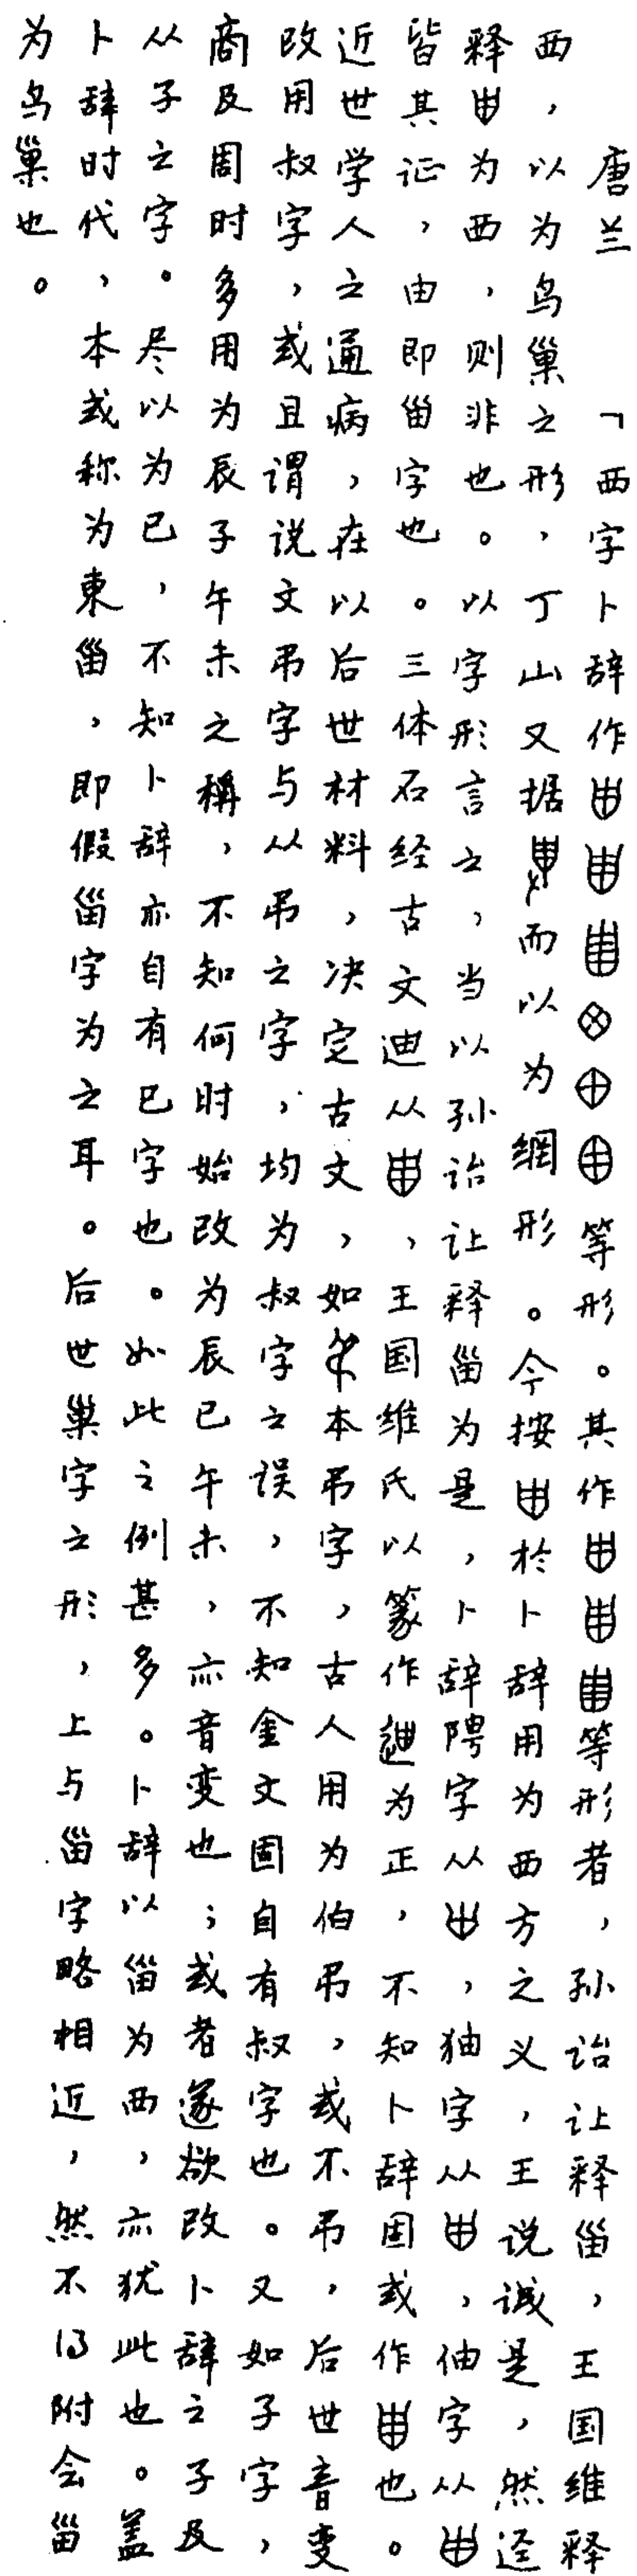 唐兰 「西字卜辞作等形。其作等形者，孙诒让释甾，王国维释
西，以为鸟巢之形，丁山又据而以为網形。今按於卜辞用为西方之义，王说诚是，然迳
释为西，则非也。以字形言之，当以孙诒让释甾为是，卜辞聘字从，字从，伷字从
皆其证，由即甾字也。三体石经古文迪从，王国维氏以篆作为正，不知卜辞固或作也。
近世学人之通病，在以后世材料，决定古文，如本弔字，古人用为伯弔，或不弔，后世音变
改用叔字，或且谓说文弔字与从弔之字，均为叔字之误，不知金文固自有叔字也。又如子字，
商及周时多用为辰子午未之稱，不知何时始改为辰巳午未，亦音变也；或者遂欲改卜辞之子及
从子之字。尽以为巳，不知卜辞亦自有巳字也。如此之例甚多。卜辞以甾为西，亦犹此也。盖
卜辞时代，本或称为東甾，即假甾字为之耳。后世巢字之形，上与甾字略相近，然不得附会甾
为鸟巢也。